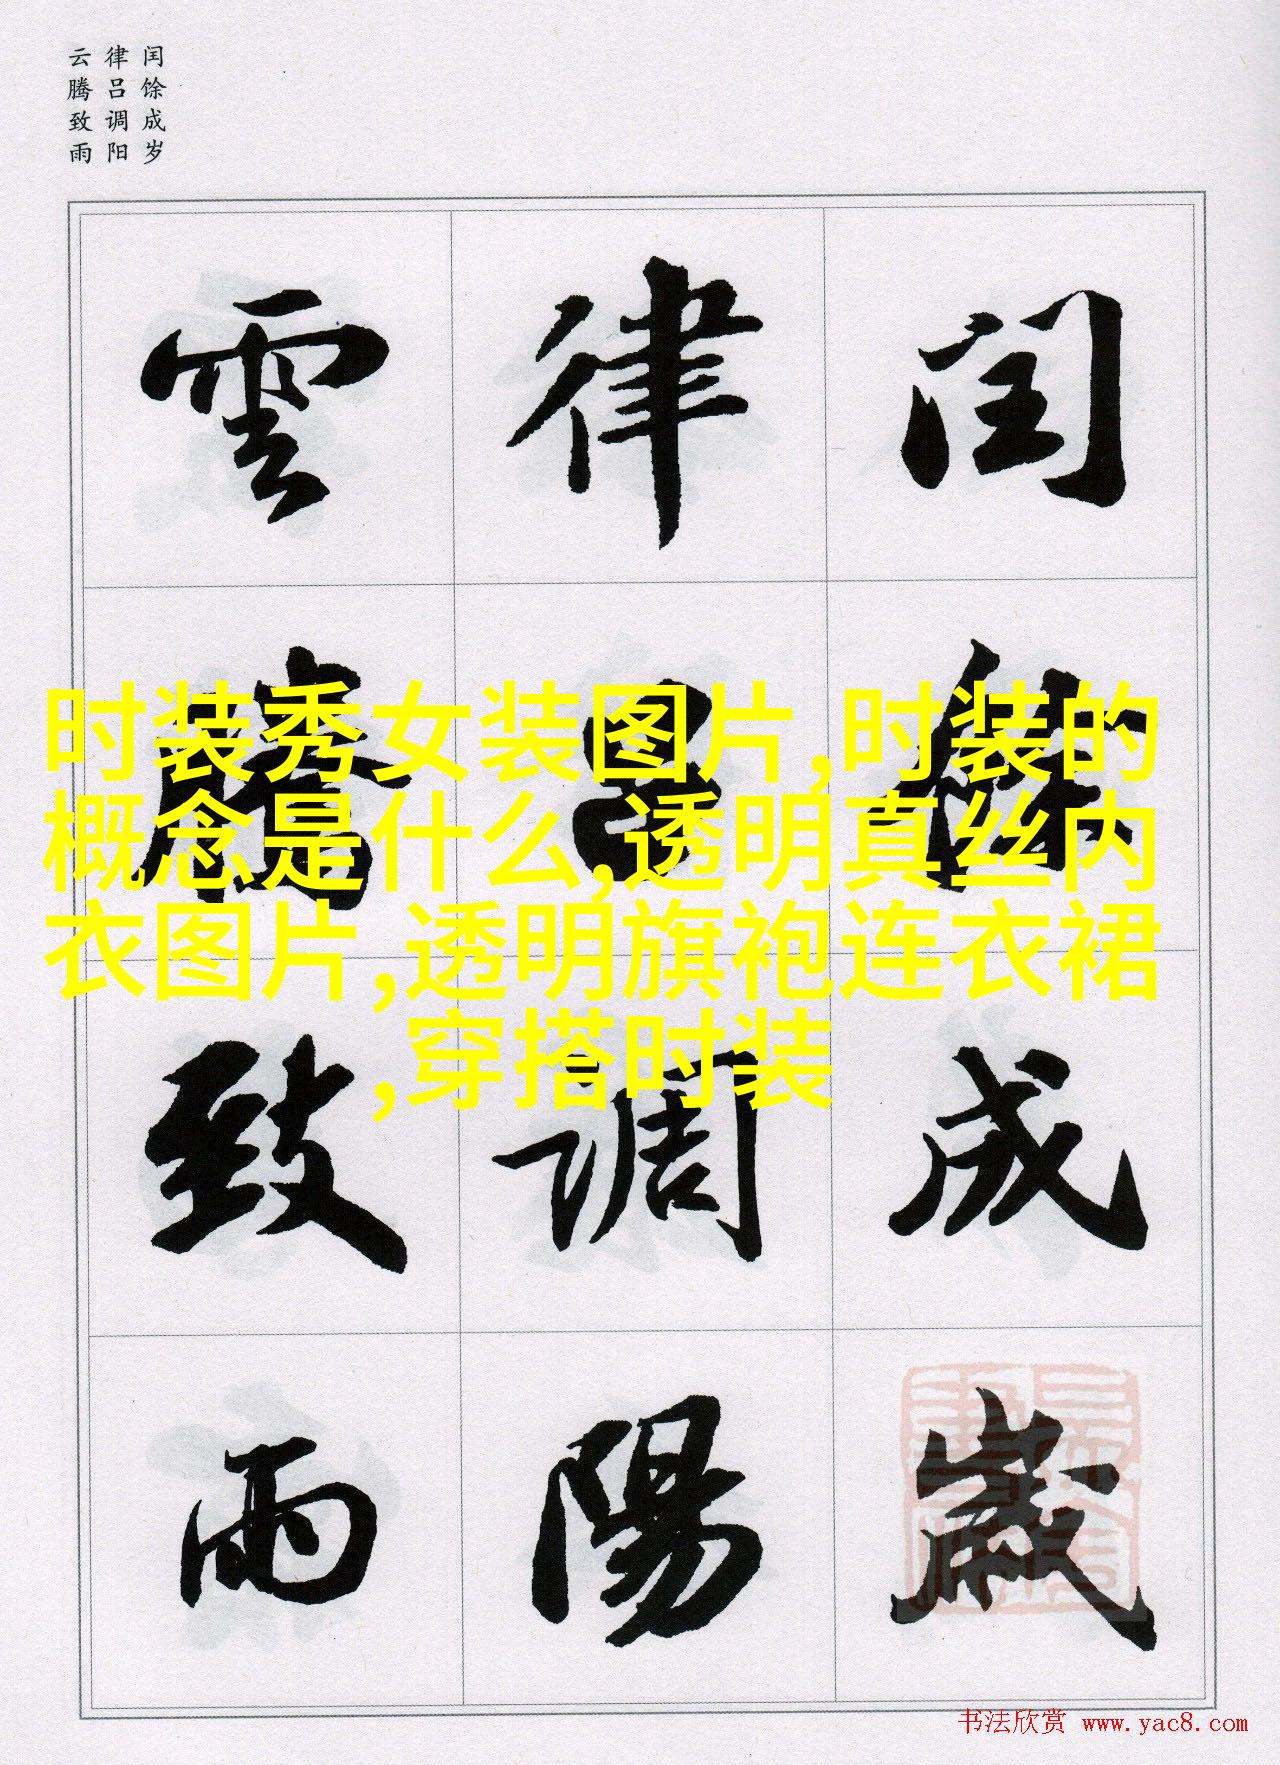 闰馀成岁
律吕调阳
云腾致雨
闰馀成歲
律吕调陽
雲腾致雨
时装秀女装图片,时装的
概念是什么,透明真丝内
衣图片,透明旗袍连衣裙
,穿搭时装
书法欣赏 www.yac8.com